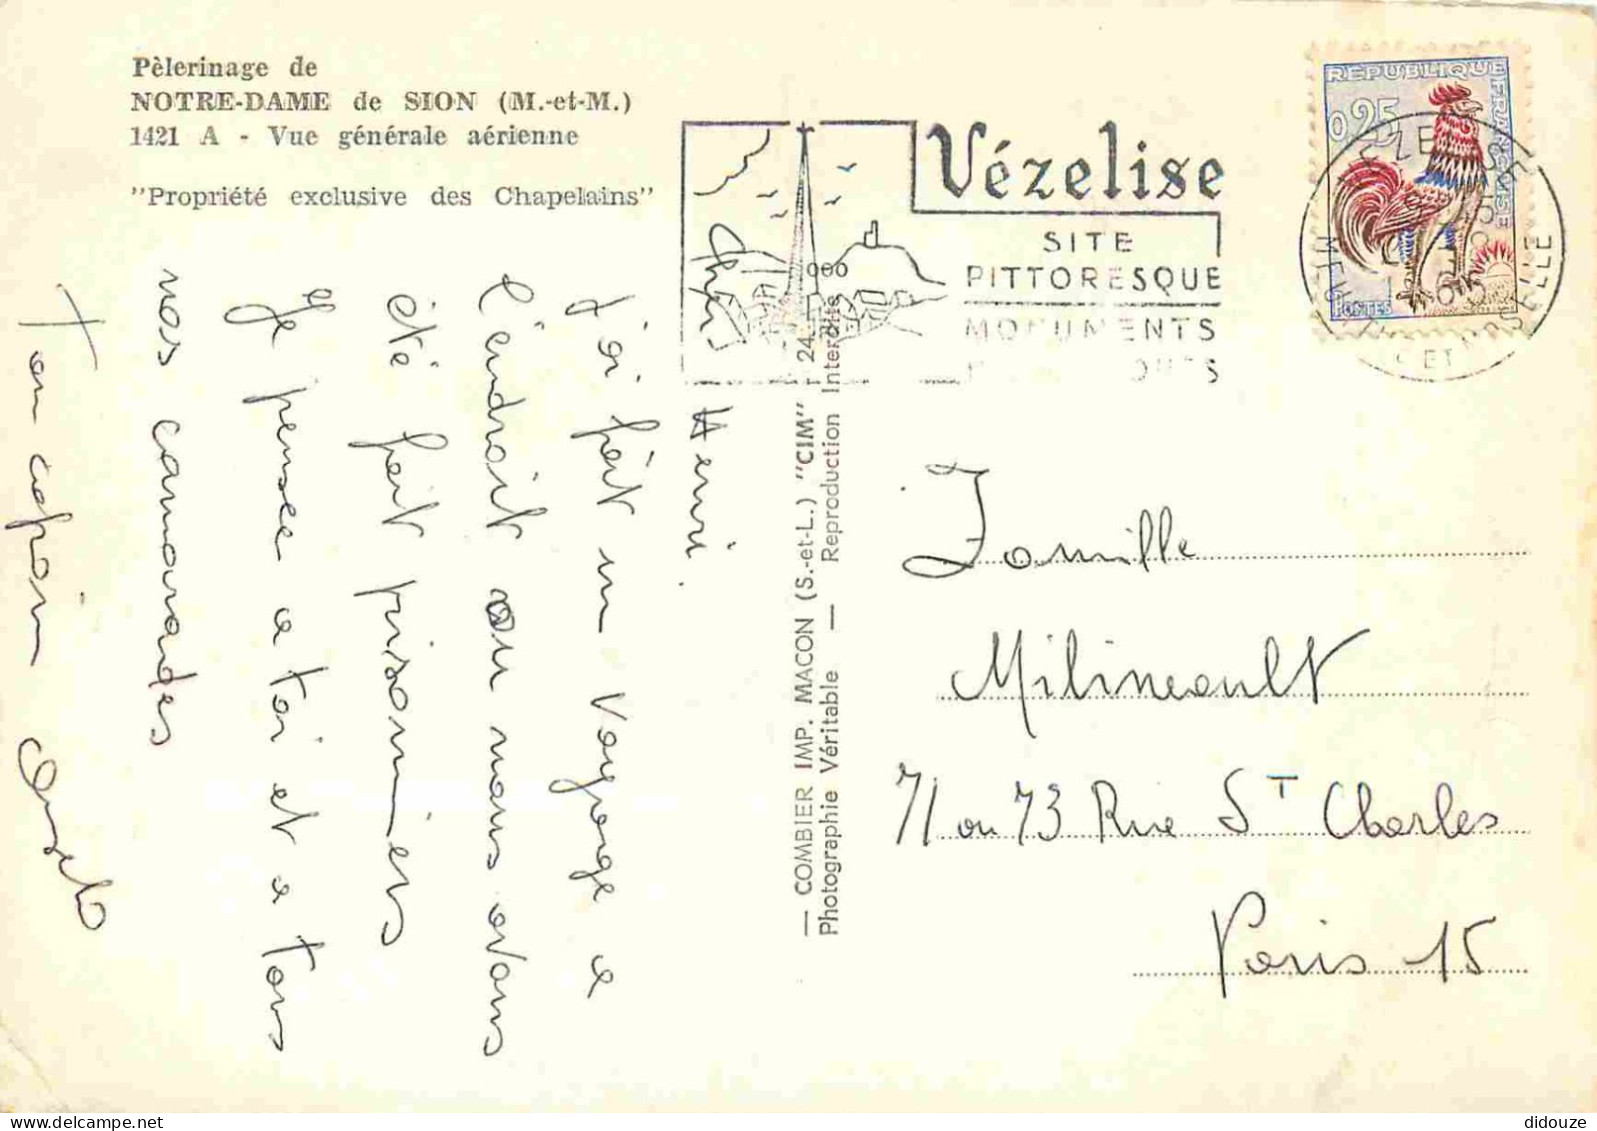 Pèlerinage de
NOTRE-DAME de SION (M.-et-M.)
1421 A - Vue générale aérienne
"Propriété exclusive des Chapelains"
Cher
Henri.
J'ai fait un voyage a
l'endroit ou nous avons
été fait prisonniers
Je pense a toi et a tous
nos camarades
Ton copain
— COMBIER IMP. MACON (S.-et-L.) "CIM"
Photographie Véritable — Reproduction Interdite
Vézelise
SITE
PITTORESQUE
MONUMENTS
REPUBLIQUE FRANÇAISE
0,25
POSTES
VEZELISE
MEURTHE ET MOSELLE
1965
Famille
Milineault
71 ou 73 Rue St Charles
Paris 15
didouze